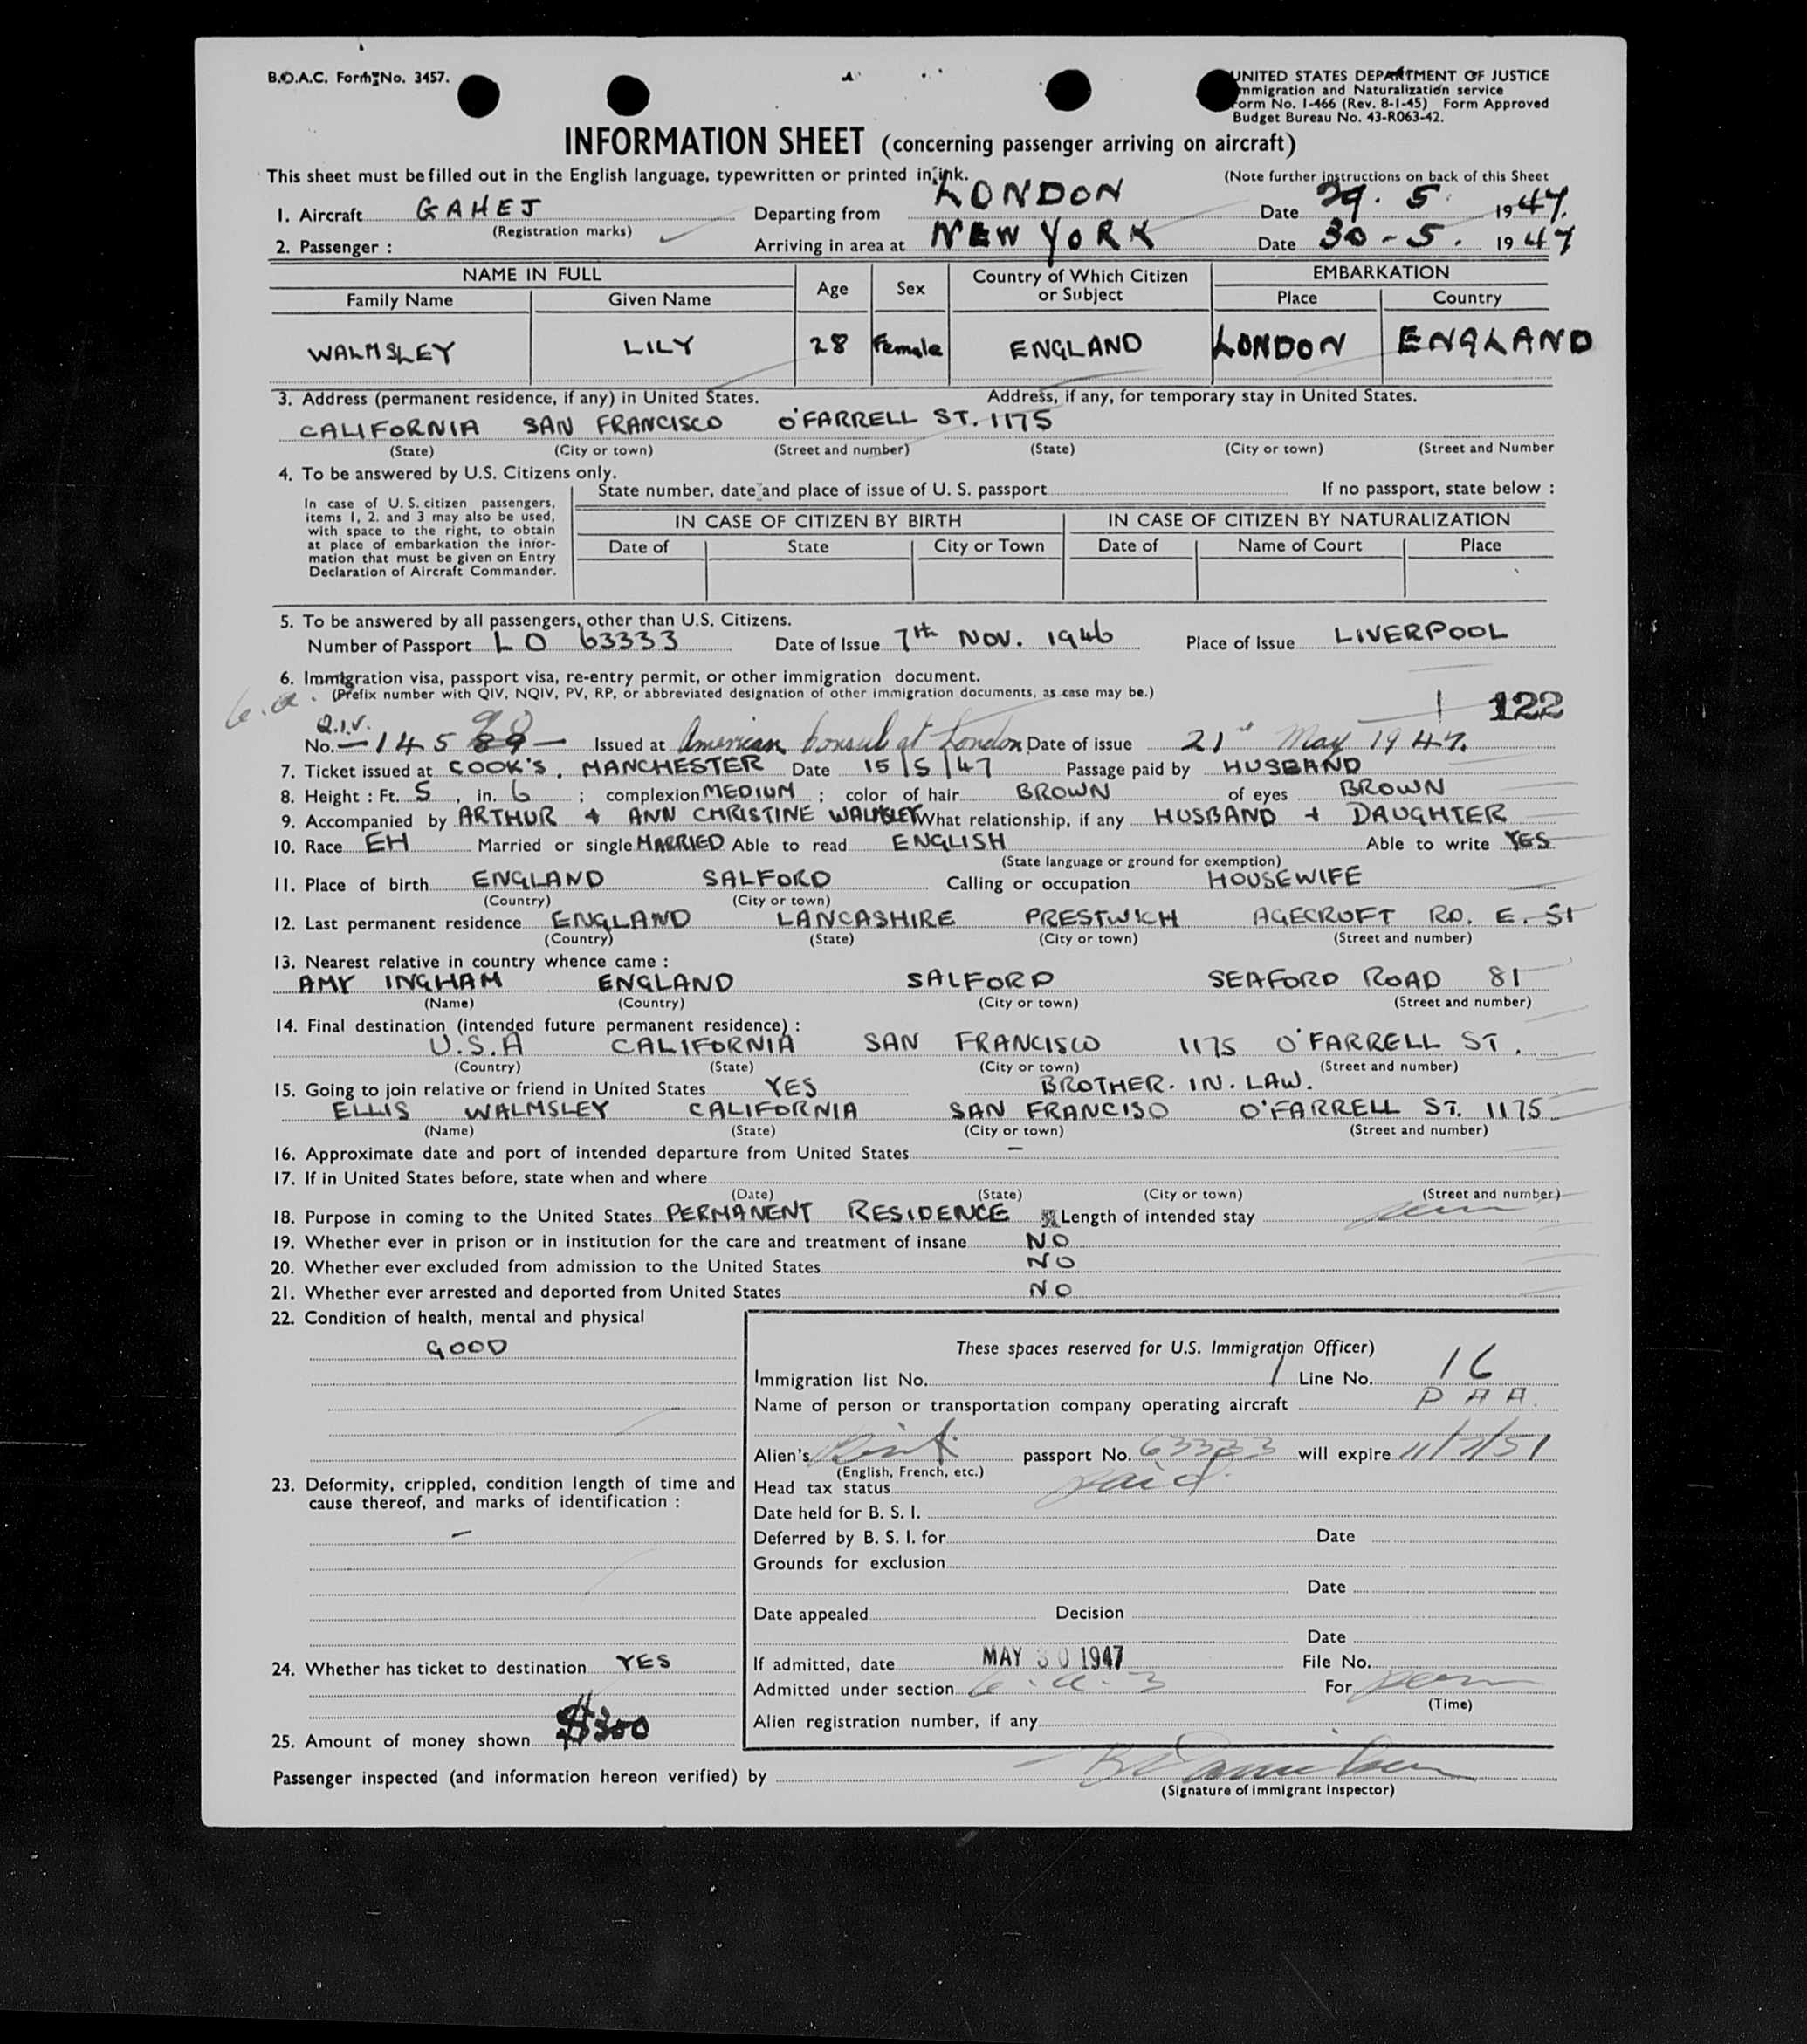 B.O.A.C. Form No. 3457.
UNITED STATES DEPARTMENT OF JUSTICE
Immigration and Naturalization service
Form No. I-466 (Rev. 8-1-45) Form Approved
Budget Bureau No. 43-R063-42.
INFORMATION SHEET (concerning passenger arriving on aircraft)
This sheet must be filled out in the English language, typewritten or printed in ink. (Note further instructions on back of this Sheet
1. Aircraft GAHEJ Departing from LONDON Date 29. 5. 1947.
(Registration marks)
2. Passenger : Arriving in area at NEW YORK Date 30-5. 1947
NAME IN FULL Age Sex Country of Which Citizen or Subject EMBARKATION
Family Name Given Name Place Country
WALMSLEY LILY 28 Female ENGLAND LONDON ENGLAND
3. Address (permanent residence, if any) in United States. Address, if any, for temporary stay in United States.
CALIFORNIA SAN FRANCISCO O'FARRELL ST. 1175
(State) (City or town) (Street and number) (State) (City or town) (Street and Number
4. To be answered by U.S. Citizens only.
In case of U. S. citizen passengers,
items 1, 2. and 3 may also be used,
with space to the right, to obtain
at place of embarkation the infor-
mation that must be given on Entry
Declaration of Aircraft Commander.
State number, date and place of issue of U. S. passport If no passport, state below :
IN CASE OF CITIZEN BY BIRTH IN CASE OF CITIZEN BY NATURALIZATION
Date of State City or Town Date of Name of Court Place
5. To be answered by all passengers, other than U.S. Citizens.
Number of Passport LO 63333 Date of Issue 7th NOV. 1946 Place of Issue LIVERPOOL
6. Immigration visa, passport visa, re-entry permit, or other immigration document.
(Prefix number with QIV, NQIV, PV, RP, or abbreviated designation of other immigration documents, as case may be.)
1 122
Q.I.V.
No. -14589- 90 Issued at American Consul at London Date of issue 21st May 1947.
7. Ticket issued at COOK'S, MANCHESTER Date 15/5/47 Passage paid by HUSBAND
8. Height : Ft. 5, in. 6 ; complexion MEDIUM ; color of hair BROWN of eyes BROWN
9. Accompanied by ARTHUR + ANN CHRISTINE WALMSLEY What relationship, if any HUSBAND + DAUGHTER
10. Race EH Married or single MARRIED Able to read ENGLISH Able to write YES
(State language or ground for exemption)
11. Place of birth ENGLAND SALFORD Calling or occupation HOUSEWIFE
(Country) (City or town)
12. Last permanent residence ENGLAND LANCASHIRE PRESTWICH AGECROFT RD. E. 51
(Country) (State) (City or town) (Street and number)
13. Nearest relative in country whence came :
AMY INGHAM ENGLAND SALFORD SEAFORD ROAD 81
(Name) (Country) (City or town) (Street and number)
14. Final destination (intended future permanent residence) :
U.S.A CALIFORNIA SAN FRANCISCO 1175 O'FARRELL ST.
(Country) (State) (City or town) (Street and number)
15. Going to join relative or friend in United States YES BROTHER. IN. LAW.
ELLIS WALMSLEY CALIFORNIA SAN FRANCISO O'FARRELL ST. 1175
(Name) (State) (City or town) (Street and number)
16. Approximate date and port of intended departure from United States -
17. If in United States before, state when and where
(Date) (State) (City or town) (Street and number)
18. Purpose in coming to the United States PERMANENT RESIDENCE Length of intended stay perm
19. Whether ever in prison or in institution for the care and treatment of insane NO
20. Whether ever excluded from admission to the United States NO
21. Whether ever arrested and deported from United States NO
22. Condition of health, mental and physical
GOOD
These spaces reserved for U.S. Immigration Officer)
Immigration list No. 1 Line No. 16
Name of person or transportation company operating aircraft P A A
Alien's Brit. passport No. 63333 will expire 11/7/51
(English, French, etc.)
23. Deformity, crippled, condition length of time and
cause thereof, and marks of identification :
-
Head tax status paid
Date held for B. S. I.
Deferred by B. S. I. for Date
Grounds for exclusion
Date
Date appealed Decision
Date
24. Whether has ticket to destination YES
If admitted, date MAY 30 1947 File No.
Admitted under section 6.a.3 For perm
(Time)
Alien registration number, if any
25. Amount of money shown $300
Passenger inspected (and information hereon verified) by
(Signature of immigrant Inspector)